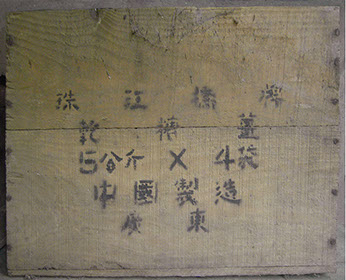 珠江橋牌
乾糖薑
5公斤X4袋
中國製造
廣東